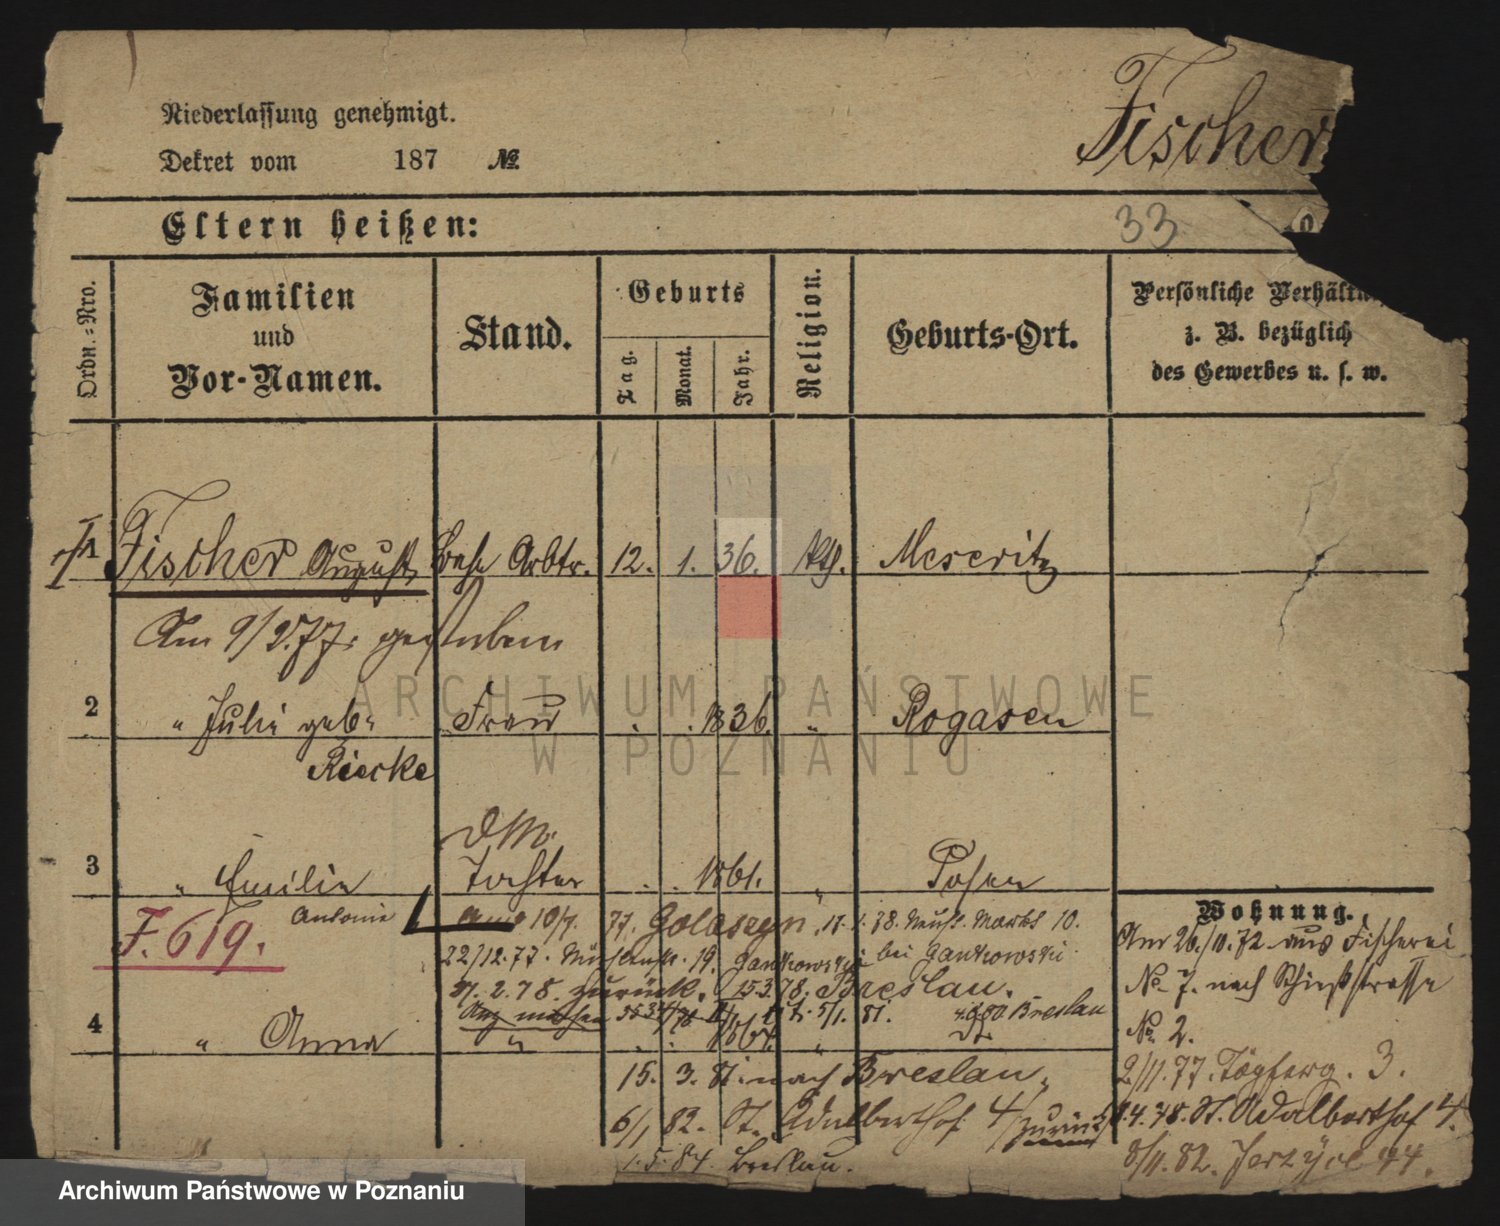 Fischer
Niederlassung genehmigt.
Dekret vom 187 №
Eltern heißen:
33
Ordn.-Nro.
Familien
und
Vor-Namen.
Stand.
Geburts
Tag.
Monat.
Jahr.
Religion.
Geburts-Ort.
Persönliche Verhältn
z. B. bezüglich
des Gewerbes u. s. w.
1 Fischer August Arbtr. 12. 1. 36. kth. Meseritz
Am 9/2.77. gestorben
2 " Julie geb. Frau 1836. " Rogasen
Riecke
3 " Emilie Tochter 1861. " Posen
Antonie
F. 619.
10/7. 77. Golaszyn, 17.1.78. Markt 10.
22/12.77. Mühlenstr. 19. Gantkowski bei Gantkowski
2.78. zurück. 15.3.78. Breslau.
5/1. 81. Breslau
4 " Anna " 1864. "
15. 3. 81. nach Breslau.
6/1 82. St. Adalberthof 4/ zurück
1.5.84. Breslau.
Wohnung.
Am 26./10.72 aus Fischerei
No 7. nach Schießstrasse
No 2.
2/11.77. 3.
1.4.78. St. Adalberthof 4.
8/11.82. Jerzyce 44.
ARCHIWUM PAŃSTWOWE
W POZNANIU
Archiwum Państwowe w Poznaniu